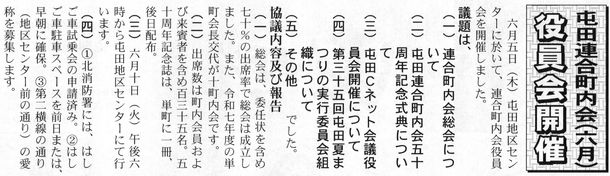 屯田連合町内会(六月)
役員会開催
六月五日(木)屯田地区セン
ターに於いて、連合町内会役員
会を開催しました。
議題は、
(一)連合町内会総会につ
いて
(二)屯田連合町内会五十
周年記念式典につい
て
(三)屯田ぐネット会議役
員会開催について
(四)第三十五回屯田夏ま
つりの実行委員会組
織について
(五)その他 でした。
協議内容及び報告
(一)総会は、委任状を含め
七十%の出席率で総会は成立し
ました。また、令和七年度の単
町会長交代が十町内会です。
(二)出席数は町内会員およ
び来賓者を含め百三十五名。五
十周年記念誌は、単町に一冊、
後日配布。
(三)六月十日(火)午後六
時から屯田地区センターにて行
います。
(四)①北消防署には、はし
ご車試乗会の申請済み。②はし
ご車駐車スペースを前日または、
早朝に確保。③第二横線の通り
(地区センター前の通り)の愛
称を募集します。